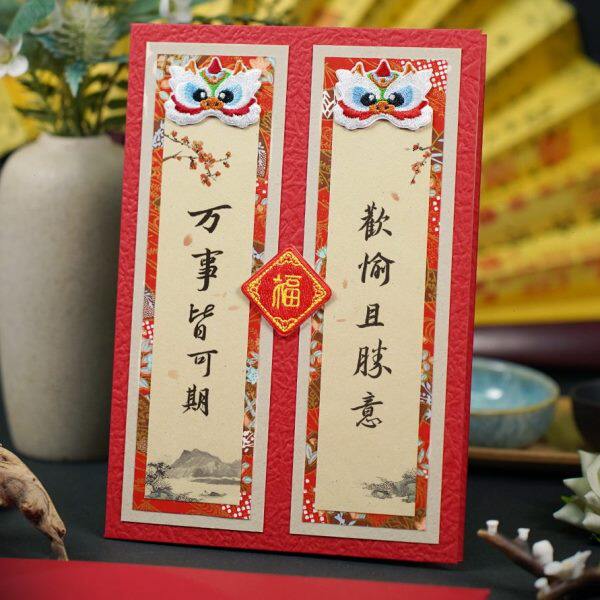 歡愉且勝意
福
万事皆可期